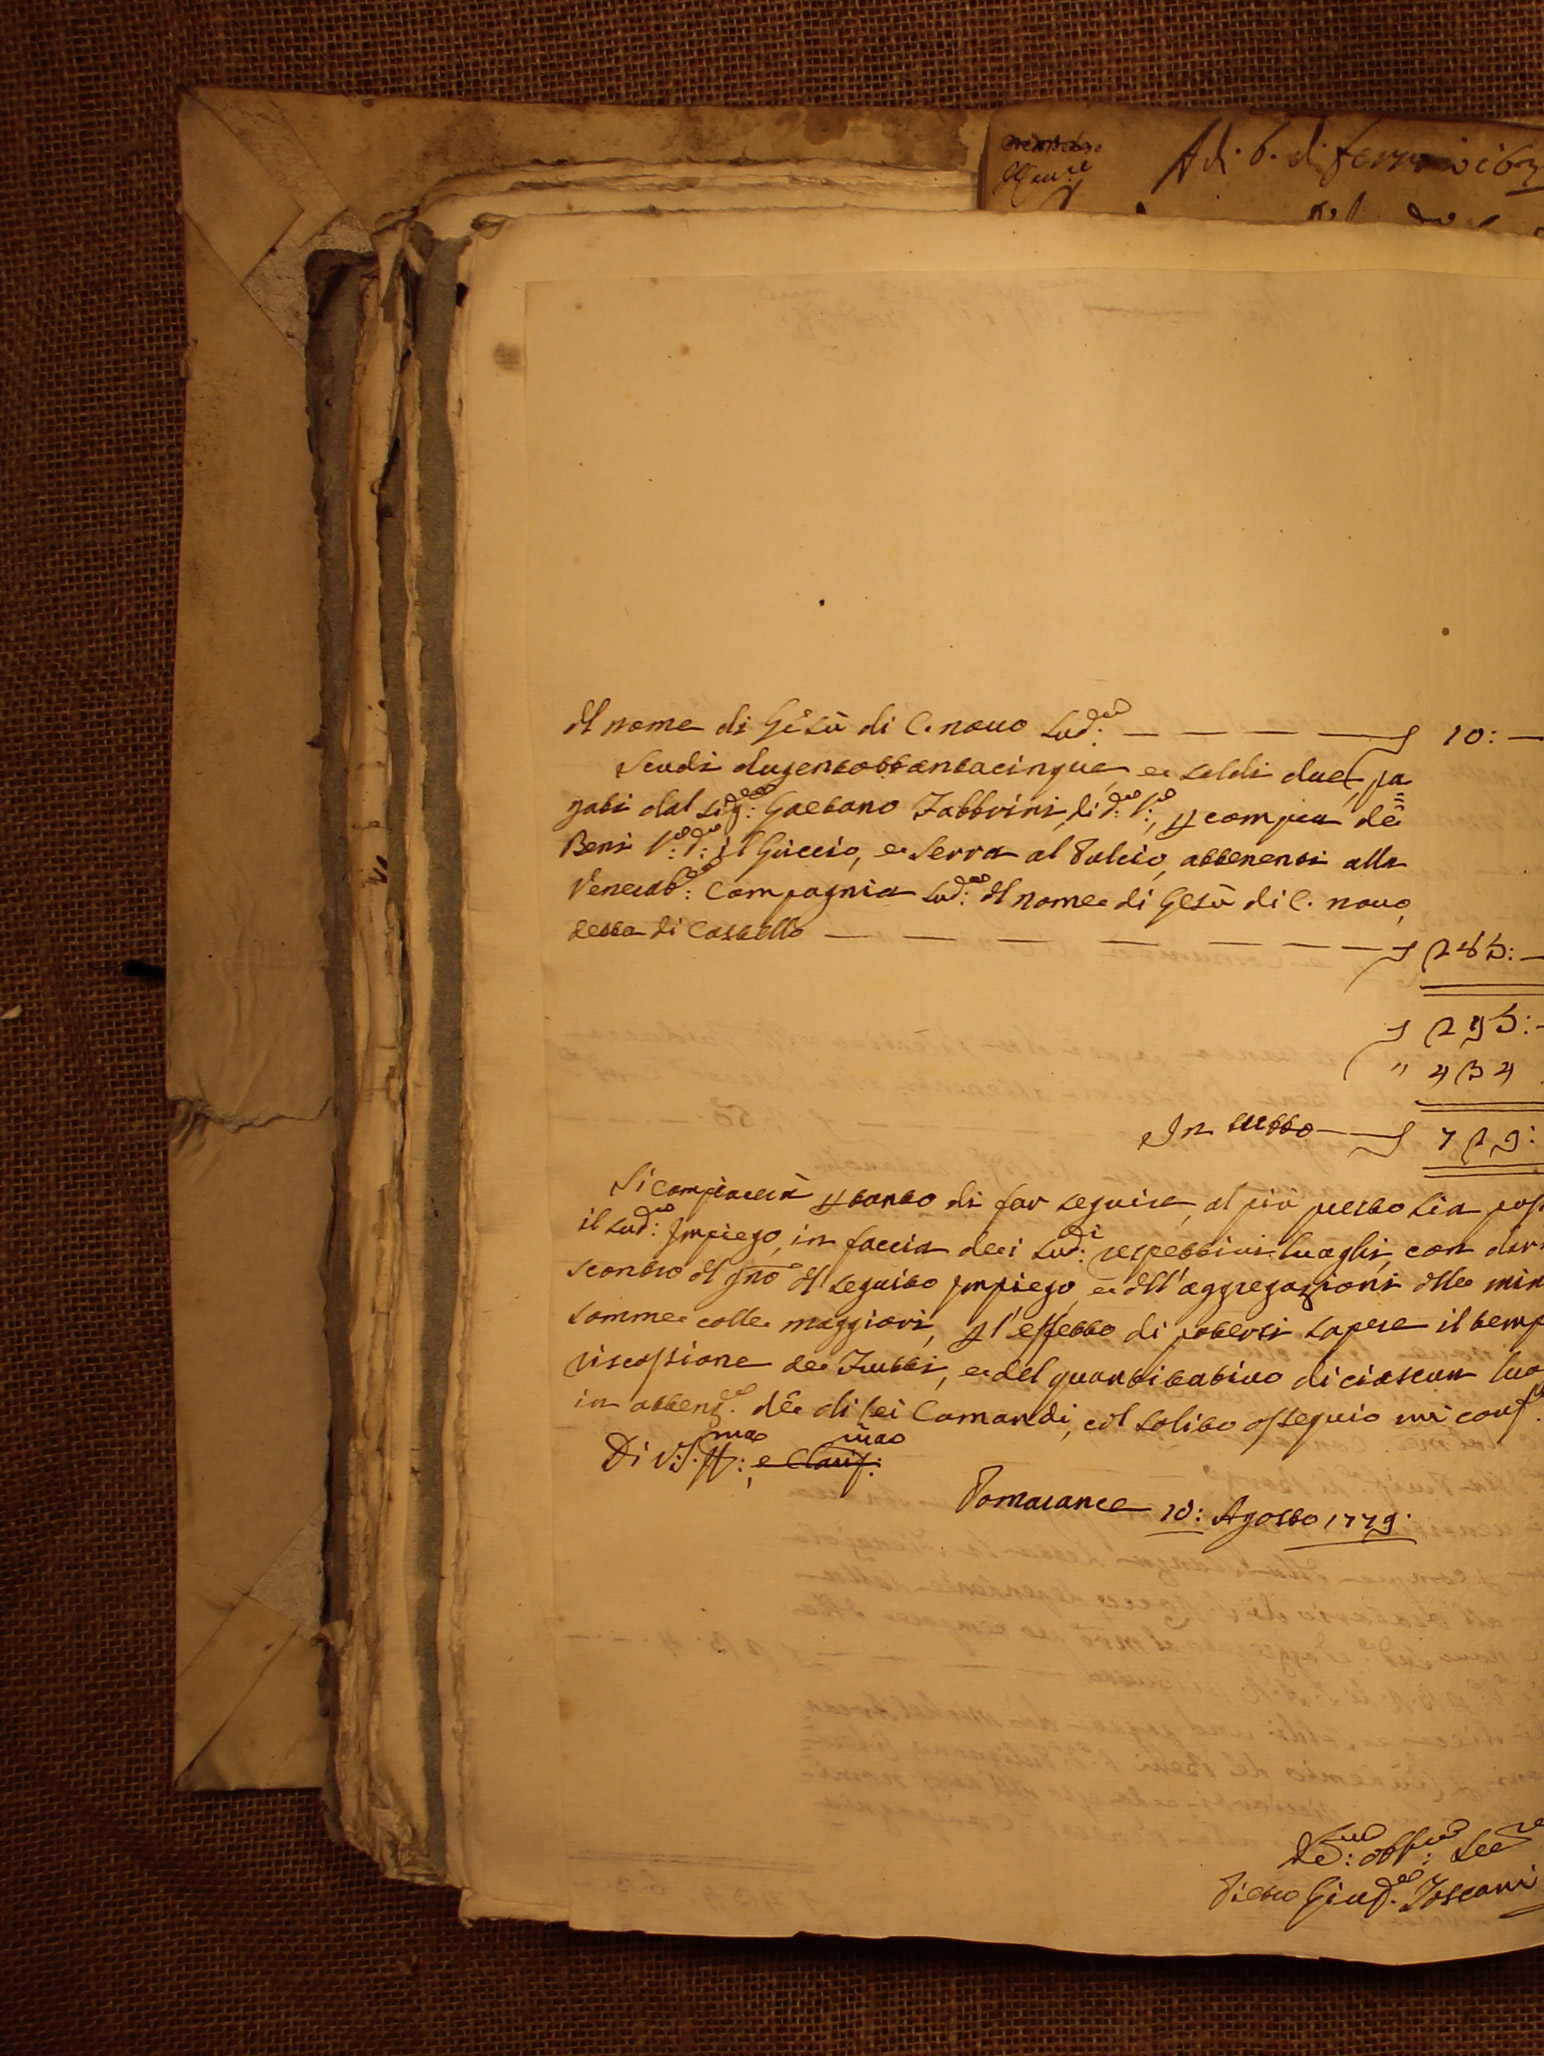 Adi. 6. di ferraio 163
Il nome di Gesù di C. novo Sud:ᵃ — — — — ʃ 10: —
Scudi dugentottantacinque, e soldi due, pa=
gati dal Sig:ʳᵉ Gaetano Fabbrini, di d:ᵒ l:ᵒ, p compra dei
Beni l:ᵒ d:ᵒ il Guccio, e Serra al Palcio, attenenti alla
Venerab:ᵉ Compagnia Sud:ᵃ Il nome di Gesù di C. novo,
detta di Castello — — — — — — — ʃ 285: —
ʃ 295: —
" 434
In tutto — ʃ 729:
Si compiacerà p tanto di far seguire, al più presto sia pos
il Sud:ᵒ Impiego, in faccia dei Sud:ⁱ respettivi Luoghi, con dar
scontro del gnō del seguito Impiego, e dell'aggregazioni delle min
somme colle maggiori, p l'effetto di potersi sapere il temp
riscossione de Frutti, e del quantitativo di ciascun luo
in attenz:ᵉ dē di lei Comandi, col solito ossequio mi conf
Di V.S. Ill:ᵐᵃ e Clariss:ᵐᵃ
Pomarance 10: Agosto 1779.
De:ᵐᵒ obb:ᵐᵒ Se
Pietro Toscani